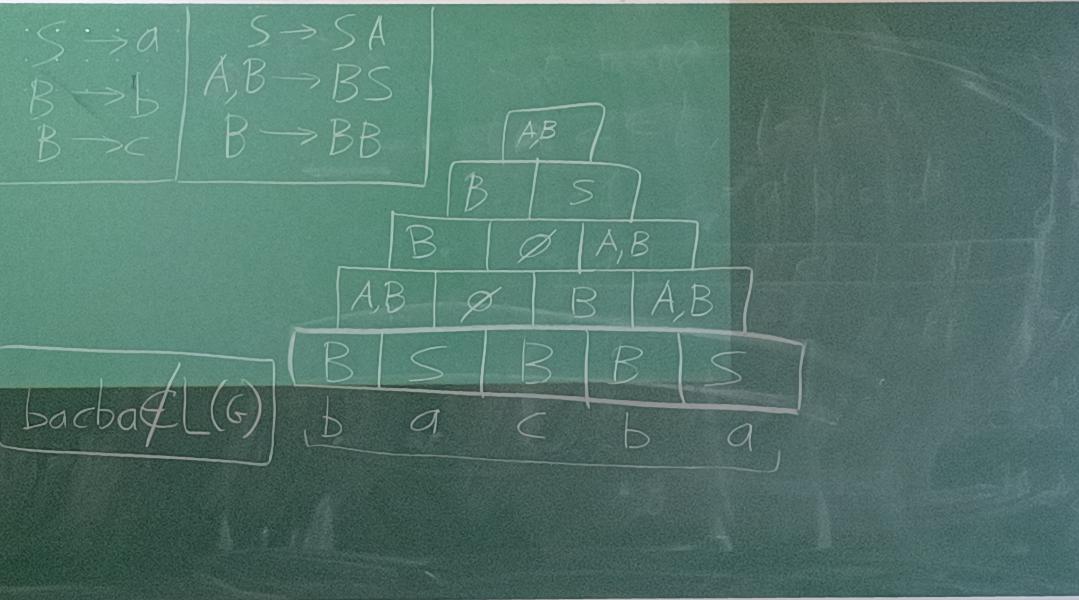 S → a
B → b
B → c
S → SA
A,B → BS
B → BB
A,B
B S
B ∅ A,B
A,B ∅ B A,B
B S B B S
b a c b a
bacba∉L(G)